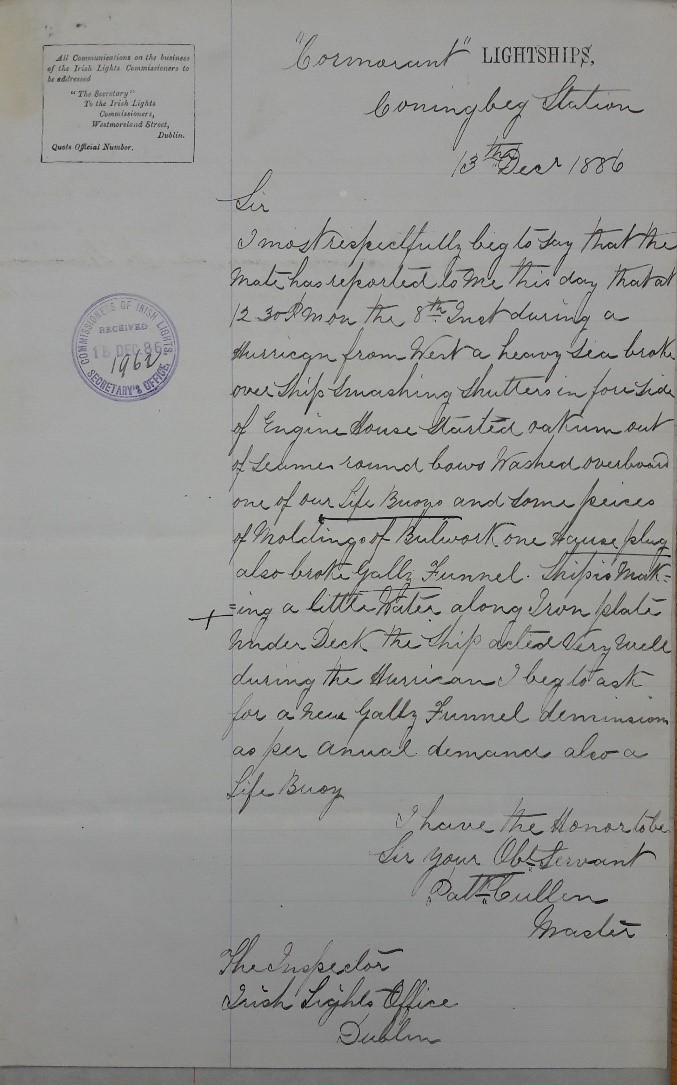 All Communications on the business
of the Irish Lights Commissioners to
be addressed
"The Secretary"
To the Irish Lights
Commissioners,
Westmoreland Street,
Dublin.
Quote Official Number.
"Cormorant" LIGHTSHIPS,
Coningbeg Station
13th Decr 1886
COMMISSIONERS OF IRISH LIGHTS
RECEIVED
15 DEC 86
1962
SECRETARY'S OFFICE
Sir
I most respectfully beg to say that the
Mate has reported to me this day that at
12 30 PM on the 8th Inst during a
Hurrican from West a heavy sea broke
over Ship Smashing Shutters in fore Side
of Engine House Started oakum out
of Seames round bows Washed overboard
one of our Life Buoys and some peices
of Moldings of Bulwork one Hause plug
also broke Gally Funnel. Ship is Mak=
=ing a little Water along Iron plate
under Deck the Ship acted Very Well
during the Hurrican I beg to ask
for a new Gally Funnel deminsions
as per anual demand also a
Life Buoy
I have the Honor to be
Sir your Obt Servant
Patk Cullen
Master
The Inspector
Irish Lights Office
Dublin